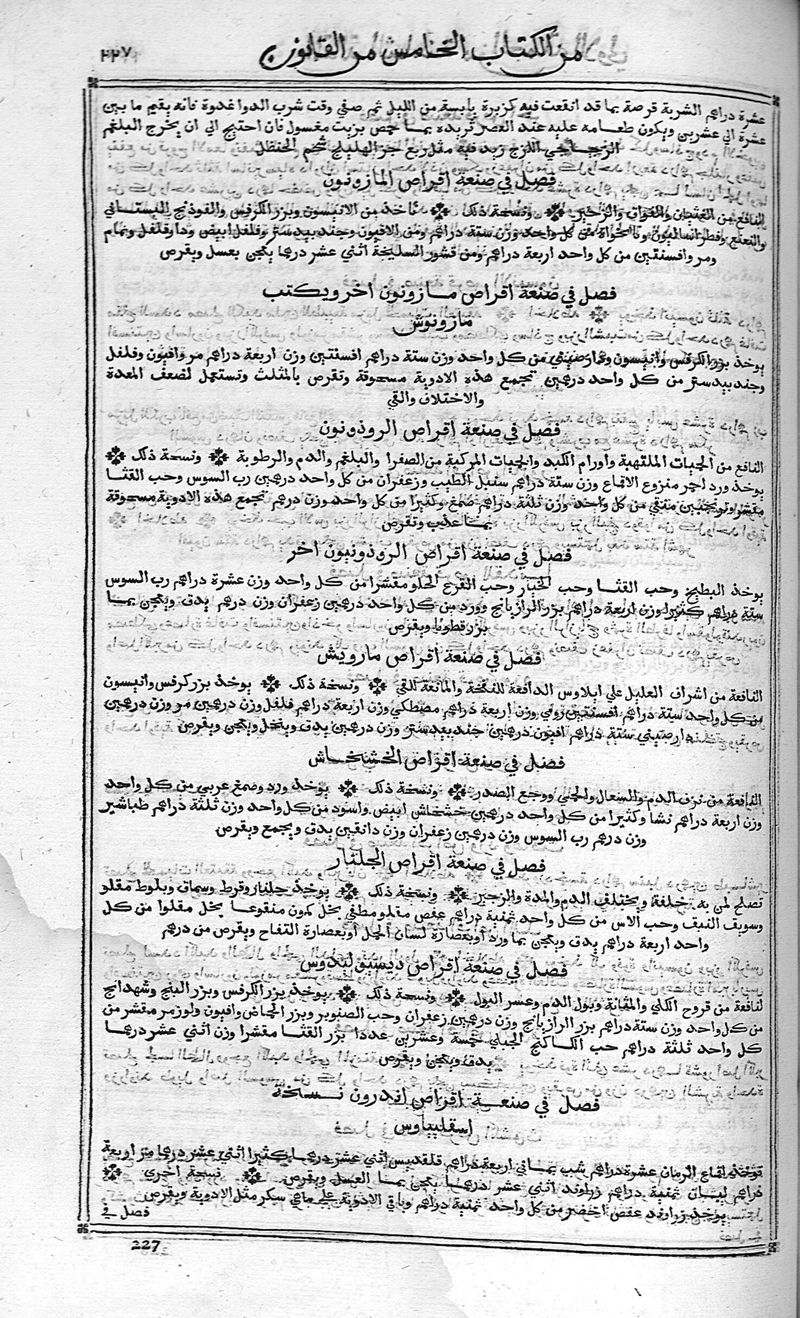 من الكتاب الخامس من القانون
٢٢٧
عشرة دراهم الشربة قرصة بما قد انقعت فيه كزبرة يابسة من الليل ثم صفي وقت شرب الدوا غدوة فانه يقيم ما بين
عشرة الي عشرين ويكون طعامه عليه عند العصر ثريده بما حمص بزيت مغسول فان احتيج الي ان يخرج البلغم
الزجاجي اللزج زيد فيه مثل ربع جز الهليلج شحم الحنظل
فصل في صنعة اقراص المازونون
النافع من الغثيان والفواق والزحير ونسخة ذلك ناخذ من الانيسون وبزر الكرفس والفوذنج البستاني
والنعنع من كل واحد وزن ستة دراهم ومن الافيون وجندبيدستر وفلفل ابيض ودار فلفل
ومر وافسنتين من كل واحد اربعة دراهم ومن قشور السليخة اثني عشر درهما يعجن بعسل ويقرص
فصل في صنعة اقراص مازونون اخر ويكتب
مارونوش
يوخذ بزر الكرفس وانيسون من كل واحد وزن ستة دراهم افسنتين وزن اربعة دراهم مر وافيون وفلفل
وجندبيدستر من كل واحد درهمين تجمع هذه الادوية مسحوقة وتقرص بالمثلث وتستعمل لضعف المعدة
والاختلاف والقي
فصل في صنعة اقراص الروذونون
النافع من الحميات الملتهبة واورام الكبد والحميات المركبة من الصفرا والبلغم والدم والرطوبة ونسخة ذلك
يوخذ ورد احمر منزوع الاقماع وزن ستة دراهم سنبل الطيب وزعفران من كل واحد درهمين رب السوس وحب القثا
مقشر وترنجبين منقي من كل واحد وزن ثلثة دراهم صمغ وكثيرا من كل واحد وزن درهم تجمع هذه الادوية مسحوقة
بما عذب وتقرص
فصل في صنعة اقراص الروذونيون اخر
يوخذ البطيخ وحب القثا وحب الخيار وحب القرع الحلو مقشرا من كل واحد وزن عشرة دراهم رب السوس
ستة دراهم كثيرا وزن اربعة دراهم بزر الرازيانج وورد من كل واحد درهمين زعفران وزن درهم يدق ويعجن بما
بزر قطونا ويقرص
فصل في صنعة اقراص مارويش
النافعة من اشراف العليل علي ايلاوس الدافعة للنفخة والمانعة للقي ونسخة ذلك يوخذ بزر كرفس وانيسون
من كل واحد ستة دراهم افسنتين رومي وزن اربعة دراهم مصطكي وزن اربعة دراهم فلفل وزن درهمين مر وزن درهمين
دارصيني ستة دراهم افيون درهمين جندبيدستر وزن درهمين يدق وينخل ويعجن ويقرص
فصل في صنعة اقراص الخشخاش
النافعة من نزف الدم والسعال والحمي ووجع الصدر ونسخة ذلك يوخذ ورد وصمغ عربي من كل واحد
وزن اربعة دراهم نشا وكثيرا من كل واحد درهمين خشخاش ابيض واسود من كل واحد وزن ثلثة دراهم طباشير
وزن درهم رب السوس وزن درهمين زعفران وزن دانقين يدق ويجمع ويقرص
فصل في صنعة اقراص الجلنار
تصلح لمن به خلفة ويختلف الدم والمدة والزحير ونسخة ذلك يوخذ جلنار وقرط وسماق وبلوط مقلو
وسويق النبق وحب الاس من كل واحد ثمنية دراهم عفص مقلو مطفي بخل كمون منقوعا بخل مقلوا من كل
واحد اربعة دراهم يدق ويعجن بما ورد او بعصارة لسان الحمل او بعصارة التفاح ويقرص من درهم
فصل في صنعة اقراص ديسقوليدوس
لنافعة من قروح الكلي والمثانة وبول الدم وعسر البول ونسخة ذلك يوخذ بزر الكرفس وبزر البنج وشهدانج
من كل واحد وزن ستة دراهم بزر الرازيانج وزن درهمين زعفران وحب الصنوبر وبزر الحماض وافيون ولوز مر مقشر من
كل واحد ثلثة دراهم حب الكاكنج الجبلي خمسة وعشرين عددا بزر القثا مقشرا وزن اثني عشر درهما
يدق ويعجن ويقرص
فصل في صنعة اقراص اندرون نسخة
اسقليبياوس
يوخذ اقماع الرمان عشرة دراهم شب يماني اربعة دراهم قلقديس اثني عشر درهما كثيرا اثني عشر درهما مر اربعة
دراهم لبان ثمنية دراهم زراوند اثني عشر درهما يعجن بما العسل ويقرص نسخة اخري
يوخذ زراوند عفص اخضر من كل واحد ثمنية دراهم وباقي الادوية علي مثل الادوية ويقرص
فصل في
227